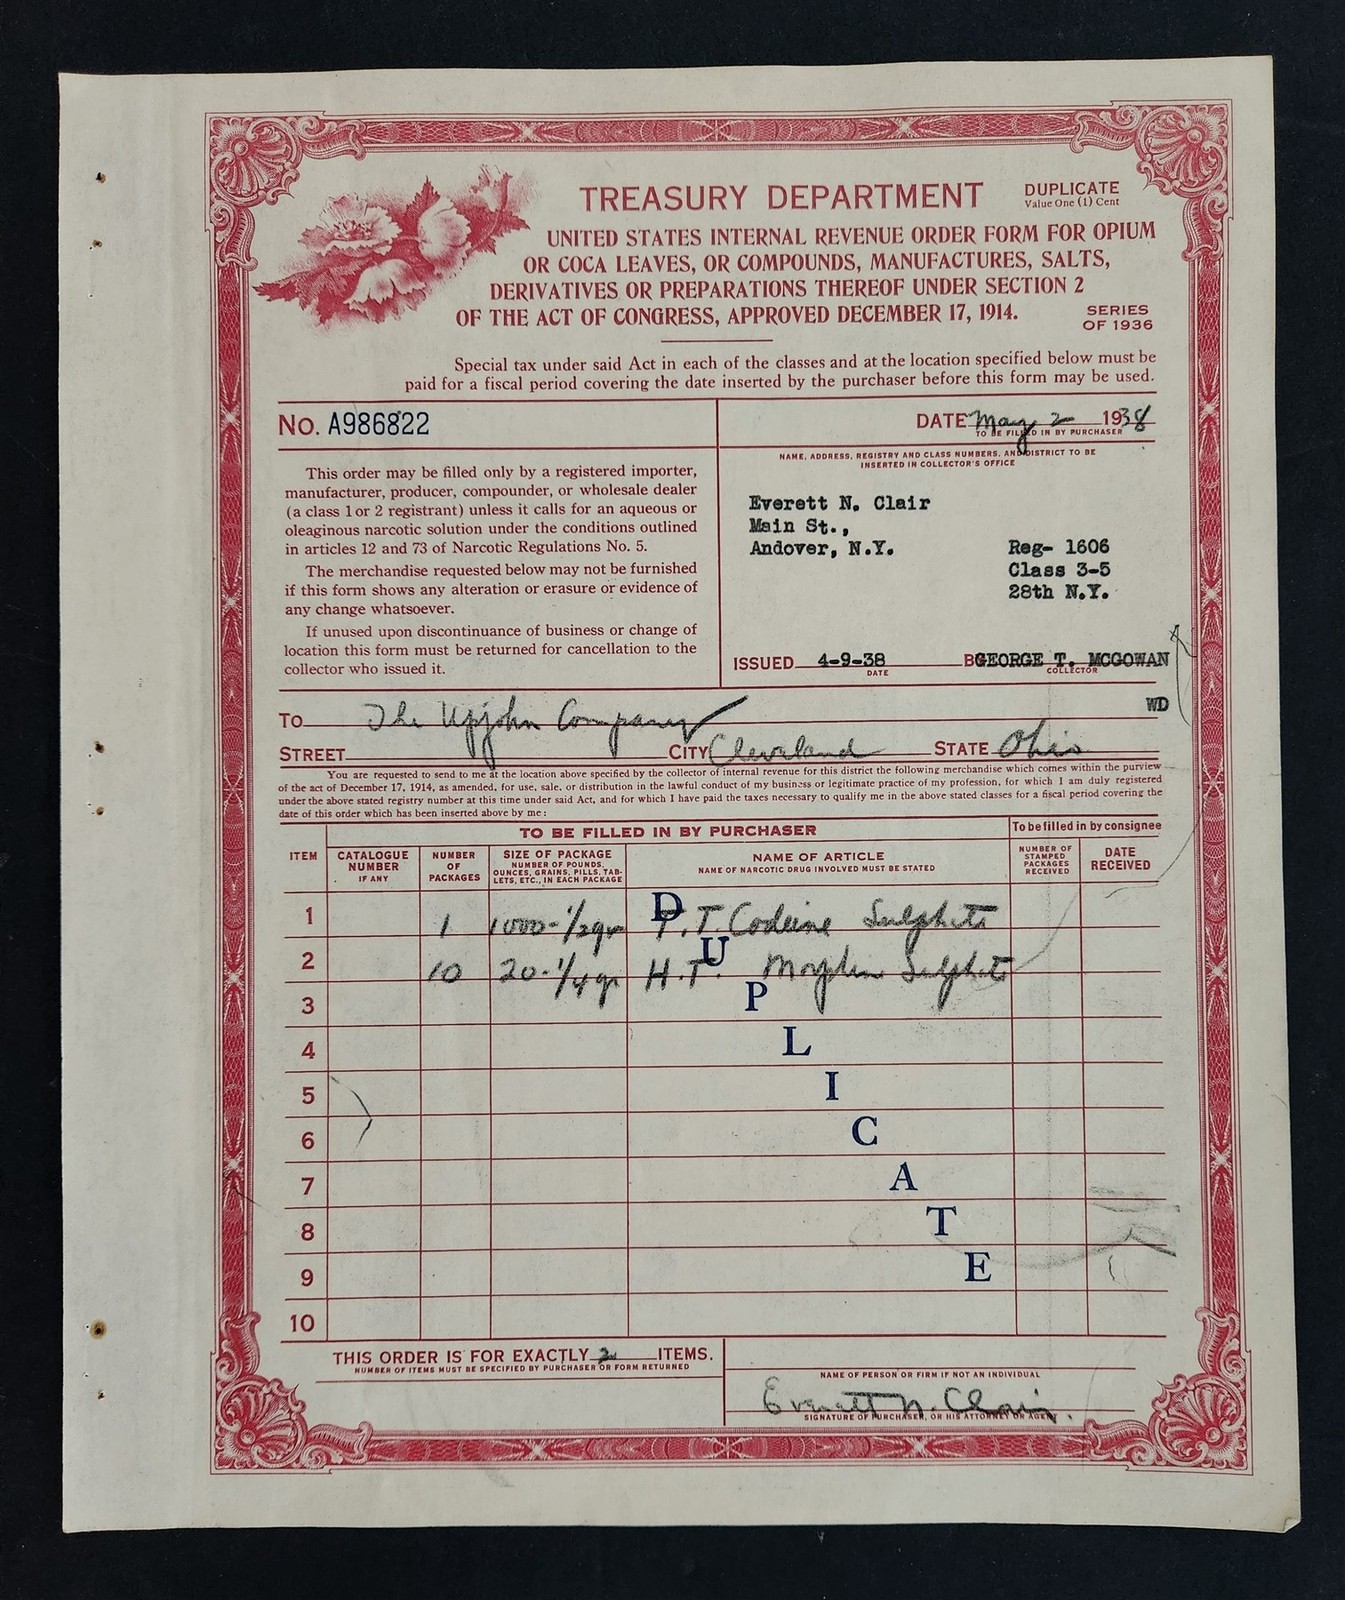 TREASURY DEPARTMENT
DUPLICATE
Value One (1) Cent
UNITED STATES INTERNAL REVENUE ORDER FORM FOR OPIUM
OR COCA LEAVES, OR COMPOUNDS, MANUFACTURES, SALTS,
DERIVATIVES OR PREPARATIONS THEREOF UNDER SECTION 2
OF THE ACT OF CONGRESS, APPROVED DECEMBER 17, 1914.
SERIES
OF 1936
Special tax under said Act in each of the classes and at the location specified below must be
paid for a fiscal period covering the date inserted by the purchaser before this form may be used.
No. A986822
DATE May 2 1938
TO BE FILLED IN BY PURCHASER
This order may be filled only by a registered importer,
manufacturer, producer, compounder, or wholesale dealer
(a class 1 or 2 registrant) unless it calls for an aqueous or
oleaginous narcotic solution under the conditions outlined
in articles 12 and 73 of Narcotic Regulations No. 5.
The merchandise requested below may not be furnished
if this form shows any alteration or erasure or evidence of
any change whatsoever.
If unused upon discontinuance of business or change of
location this form must be returned for cancellation to the
collector who issued it.
NAME, ADDRESS, REGISTRY AND CLASS NUMBERS, AND DISTRICT TO BE
INSERTED IN COLLECTOR'S OFFICE
Everett N. Clair
Main St.,
Andover, N.Y.
Reg- 1606
Class 3-5
28th N.Y.
ISSUED 4-9-38 BY GEORGE T. MCGOWAN
DATE COLLECTOR
WD
TO The Upjohn Company
STREET CITY Cleveland STATE Ohio
You are requested to send to me at the location above specified by the collector of internal revenue for this district the following merchandise which comes within the purview
of the act of December 17, 1914, as amended, for use, sale, or distribution in the lawful conduct of my business or legitimate practice of my profession, for which I am duly registered
under the above stated registry number at this time under said Act, and for which I have paid the taxes necessary to qualify me in the above stated classes for a fiscal period covering the
date of this order which has been inserted above by me:
TO BE FILLED IN BY PURCHASER
To be filled in by consignee
ITEM
CATALOGUE
NUMBER
IF ANY
NUMBER
OF
PACKAGES
SIZE OF PACKAGE
NUMBER OF POUNDS,
OUNCES, GRAINS, PILLS, TAB-
LETS, ETC., IN EACH PACKAGE
NAME OF ARTICLE
NAME OF NARCOTIC DRUG INVOLVED MUST BE STATED
NUMBER OF
STAMPED
PACKAGES
RECEIVED
DATE
RECEIVED
1 1 1000-1/2 gr T.T. Codeine Sulphate
2 10 20-1/4 gr H.T. Morphine Sulphate
3
4
5
6
7
8
9
10
DUPLICATE
THIS ORDER IS FOR EXACTLY 2 ITEMS.
NUMBER OF ITEMS MUST BE SPECIFIED BY PURCHASER OR FORM RETURNED
NAME OF PERSON OR FIRM IF NOT AN INDIVIDUAL
Everett N. Clair.
SIGNATURE OF PURCHASER, OR HIS ATTORNEY OR AGENT